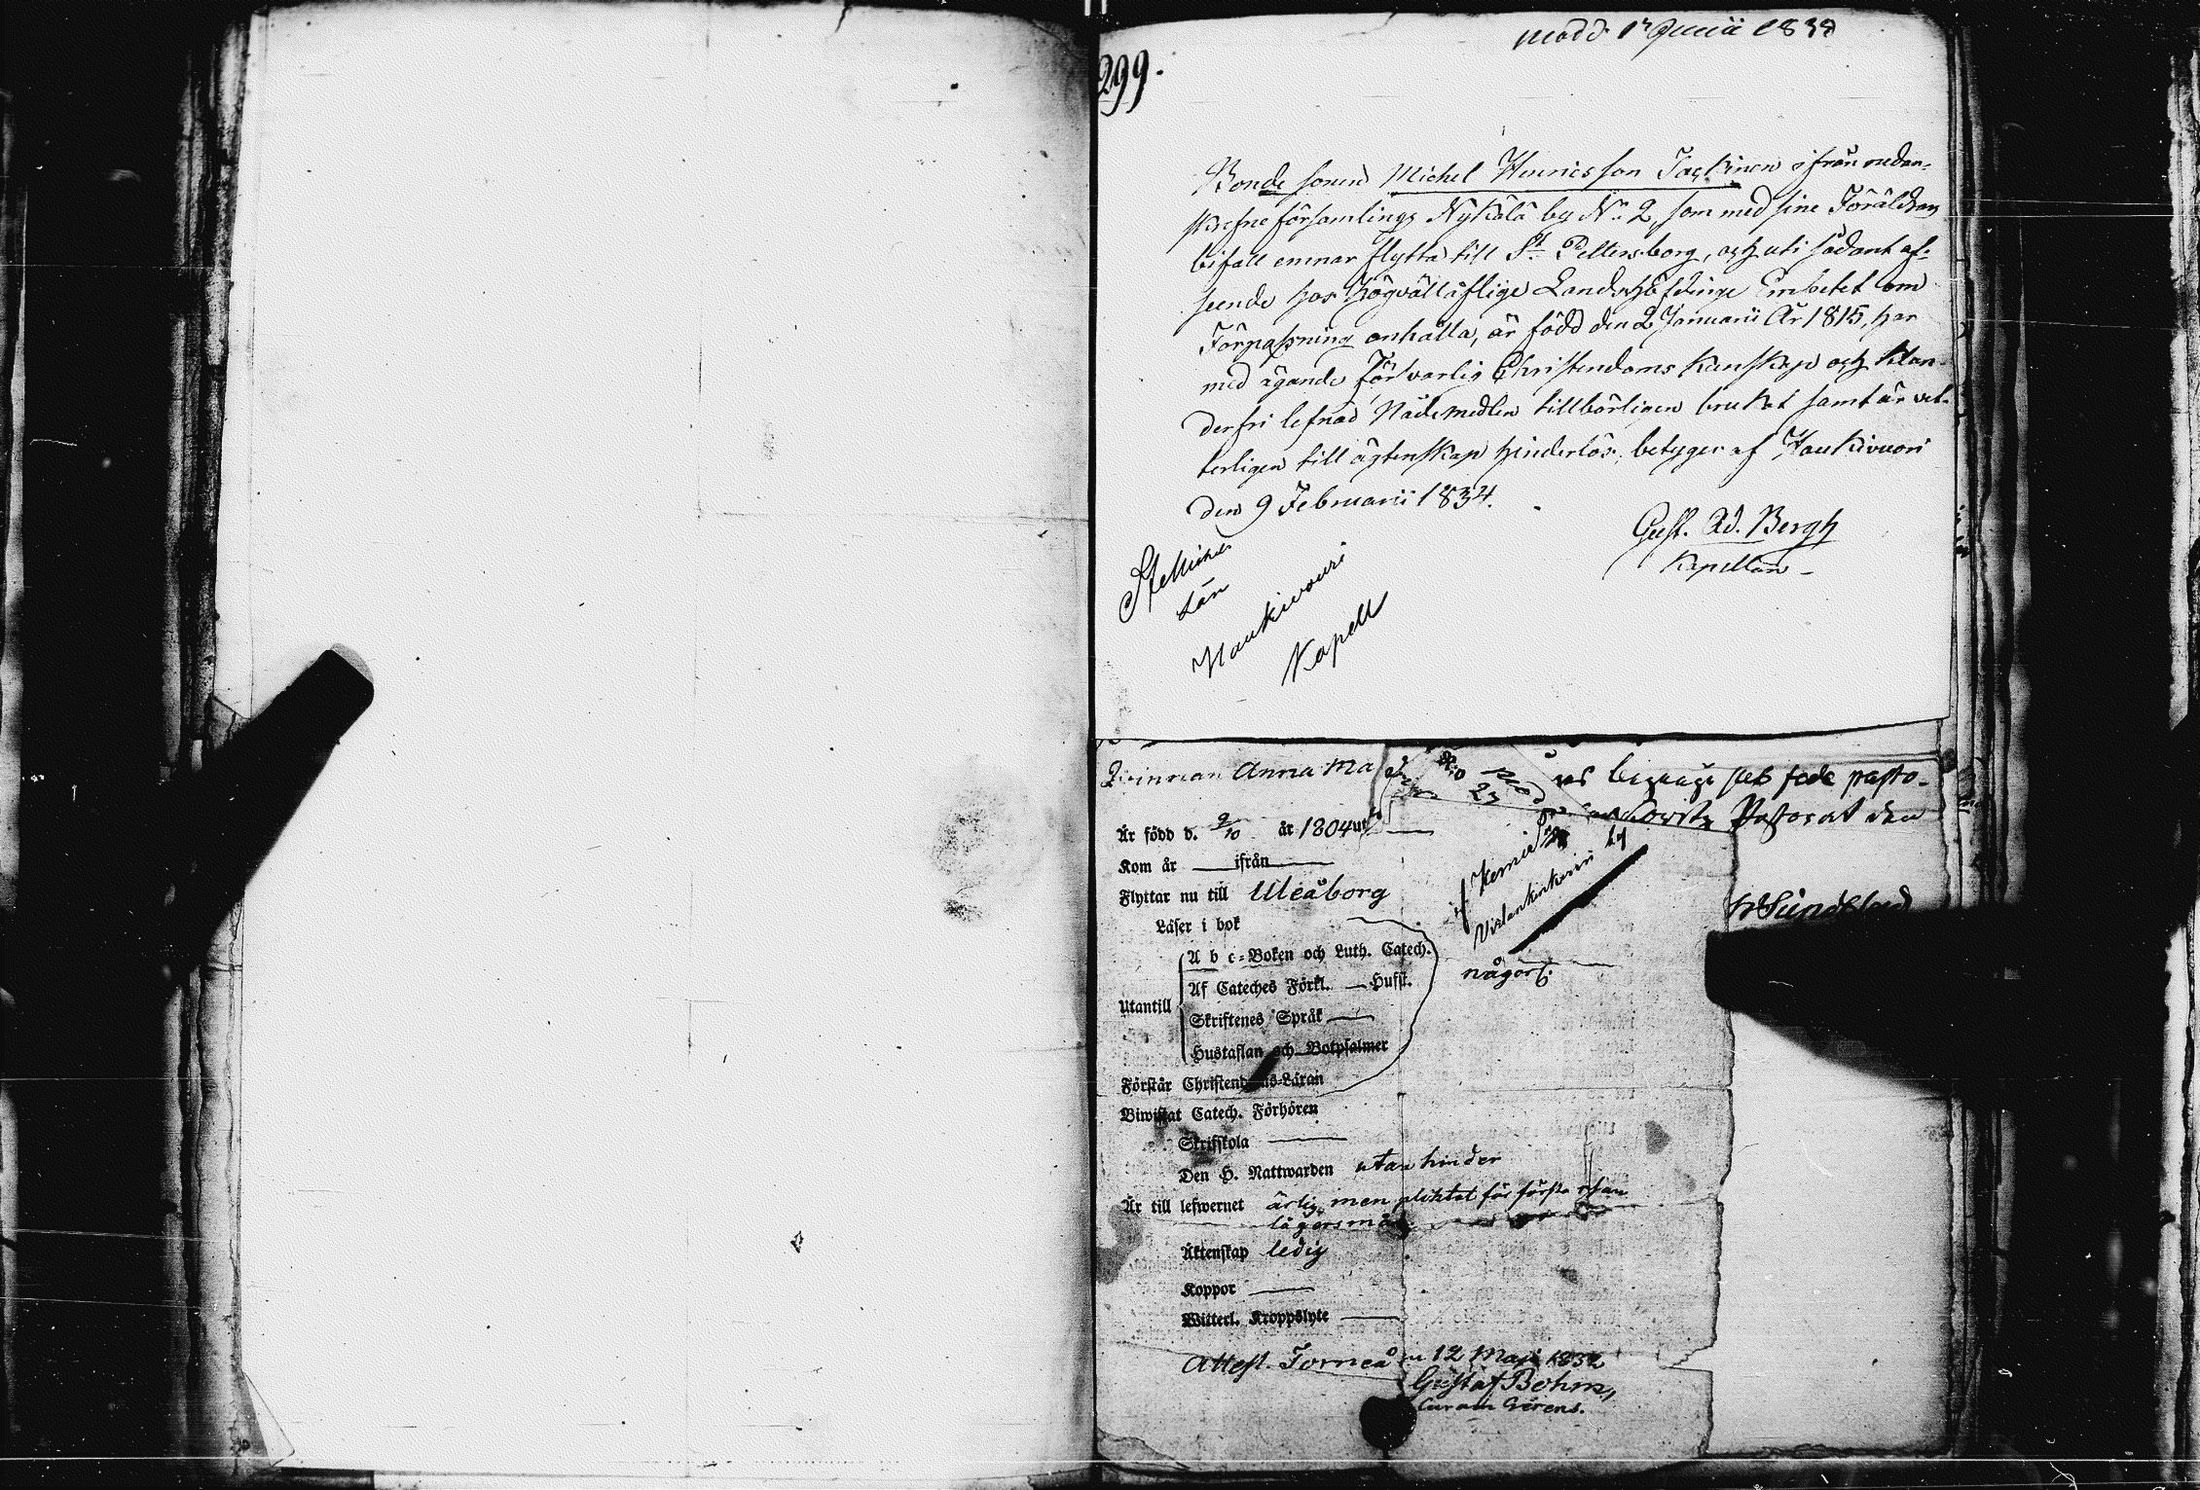 299.
Bonde sonen Michel Henricsson Jackinen ifrån nedan-
skrefne församlings Nykälä by No 2, som med sine Föräldrars
bifall ernnar flytta till St Pettersborg, och uti sådant af-
seende hos högvällåflige Landshöfdinge Embetet om
Förpassning anhålla, är född den 2 Januarii År 1815, har
med ägande försvarlig Christendoms kunskap och klan-
derfri lefnad Nådemedlen tillbörligen brukat samt är vet-
terligen till ägtenskap hinderlös, betyger af Haukivuori
den 9 Februarii 1834.
Gust. Ad. Bergh
Kapellan
St Michels
Län
Haukivuori
Kapell
Qvinnan Anna Ma
23
Pastorat den
Är född d. 9/10 år 1804
Kom år ifrån
Flyttar nu till Uleåborg
Läser i bok
någorl.
Utantill
A b c-Boken och Luth. Catech.
Af Cateches Förkl. Hufst.
Skriftenes Språk
Hustaflan och Botpsalmer
Förstår Christendoms-Läran
Biwistat Catech. Förhören
Skrifskola
Den H. Nattwarden utan hinder
Är till lefwernet ärlig, men pliktat för första resan
lägersmål
Äktenskap ledig
Koppor
Witterl. Kroppslyte
Attest. Torneå 12 Maji 1832
Gustaf Bohm,
Curam Gerens.